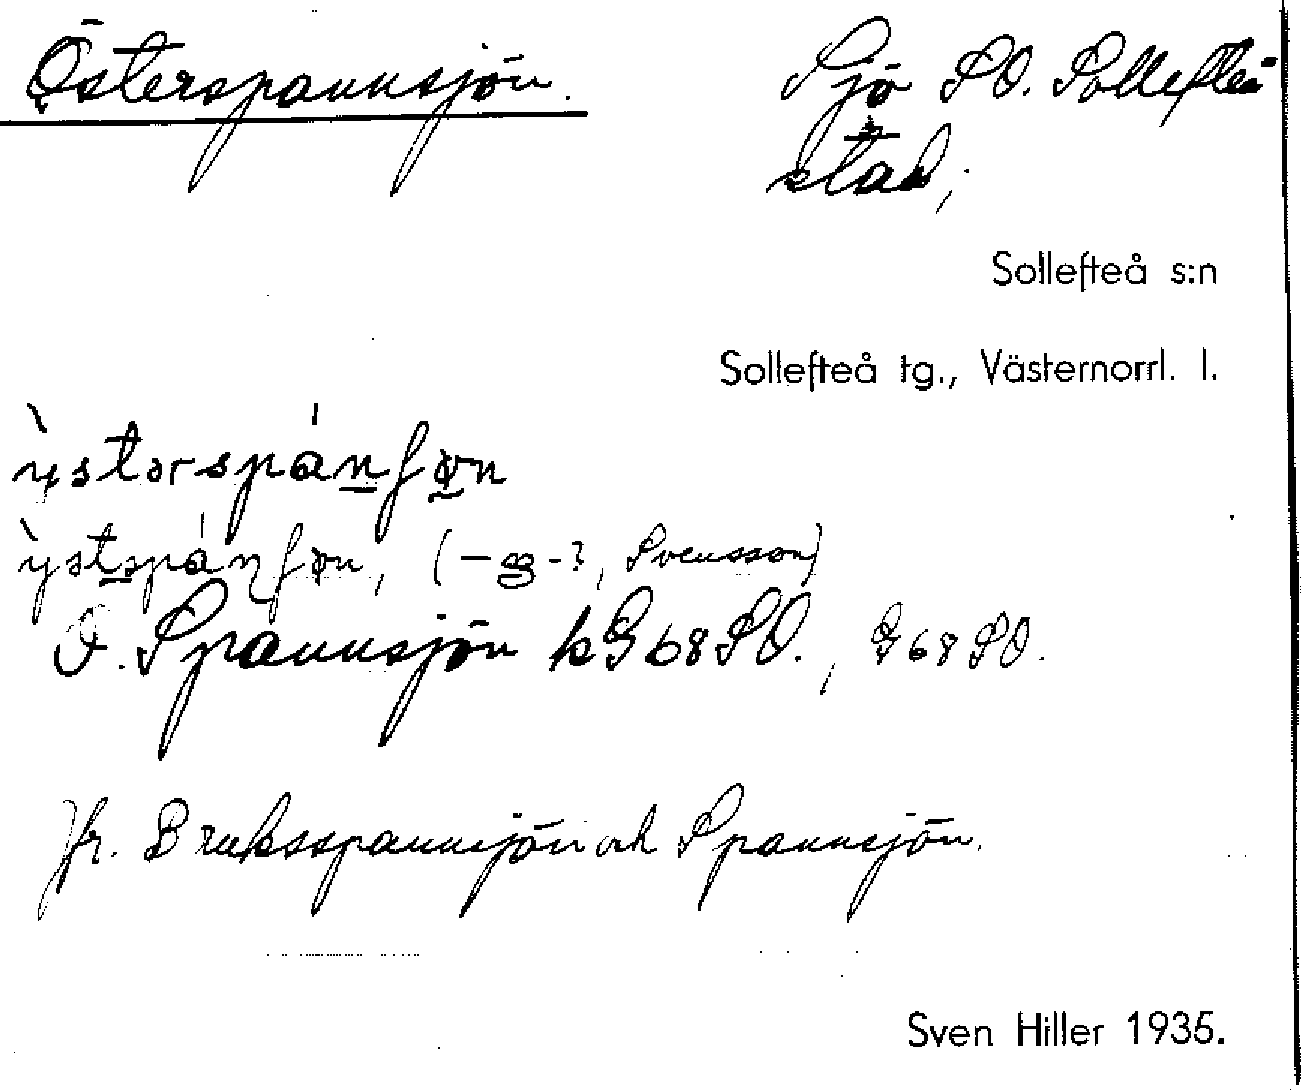 Österspannsjön. Sjö SO. Sollefteå
stad;
Sollefteå s:n
Sollefteå tg., Västernorrl. l.
(– -?, Svensson)
Ö. Spannsjön kG68SO., G68SO.
Jfr. Bruksspannsjön och Spannsjön.
Sven Hiller 1935.